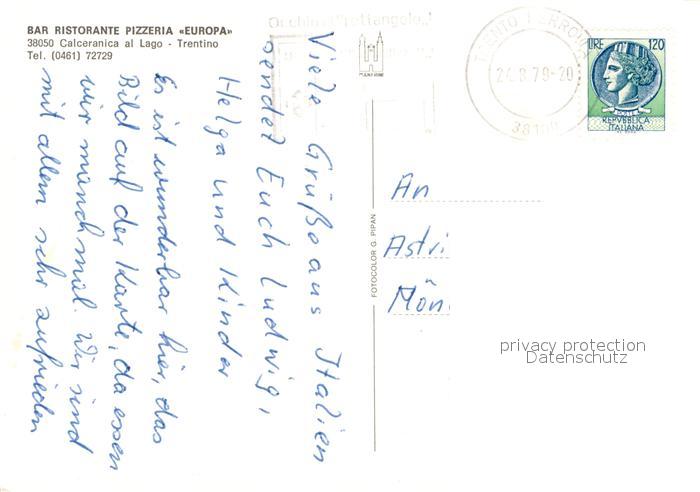 BAR RISTORANTE PIZZERIA «EUROPA»
38050 Calceranica al Lago - Trentino
Tel. (0461) 72729
Viele Grüße aus Italien
sendet Euch Ludwig,
Helga und Kinder
Es ist wunderbar hier, das
Bild auf der Karte, da essen
wir manchmal. Wir sind
mit allem sehr zufrieden
FOTOCOLOR G. PIPAN
TRENTO FERROVIA
24.8.79-20
38100
LIRE 120
POSTE
REPVBBLICA
ITALIANA
An
Astri
Mön
privacy protection
Datenschutz